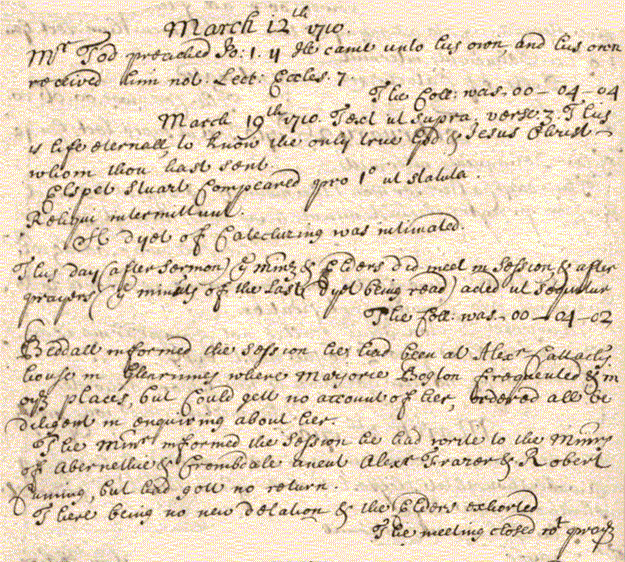 March 12th 1710
Mr Tod preached Jo: 1. 11 He came unto his own, and his own
received him not: Lect: Eccles. 7
The Coll: was. 00 – 04 – 04
March 19th 1710. Text ut supra, verse 3. This
is life eternall, to know the only true God & Jesus Christ
whom thou hast sent.
Elspet Stuart Compeared pro 1o ut statuta.
Reliqui intermittunt.
A dyet of Catechizing was intimated.
This day (after sermon) ye minr & Elders did meet in Session, & after
prayers (ye minuts of the Last dyet being read) acted ut sequitur
The Coll: was – 00 – 04 – 02
Beddall informed the session he had been at Alexr
house in where Marjorie Boston frequented & in
oyr places, but could gett no account of her, ordered all be
diligent in enquiring about her.
The Minr informed the Session he had write to the Minrs
of Abernethie & Crombdale anent Alexr Frazer & Robert
Cuming, but had gott no return.
There being no new delation & the Elders exhorted
The meeting closed wt prayr